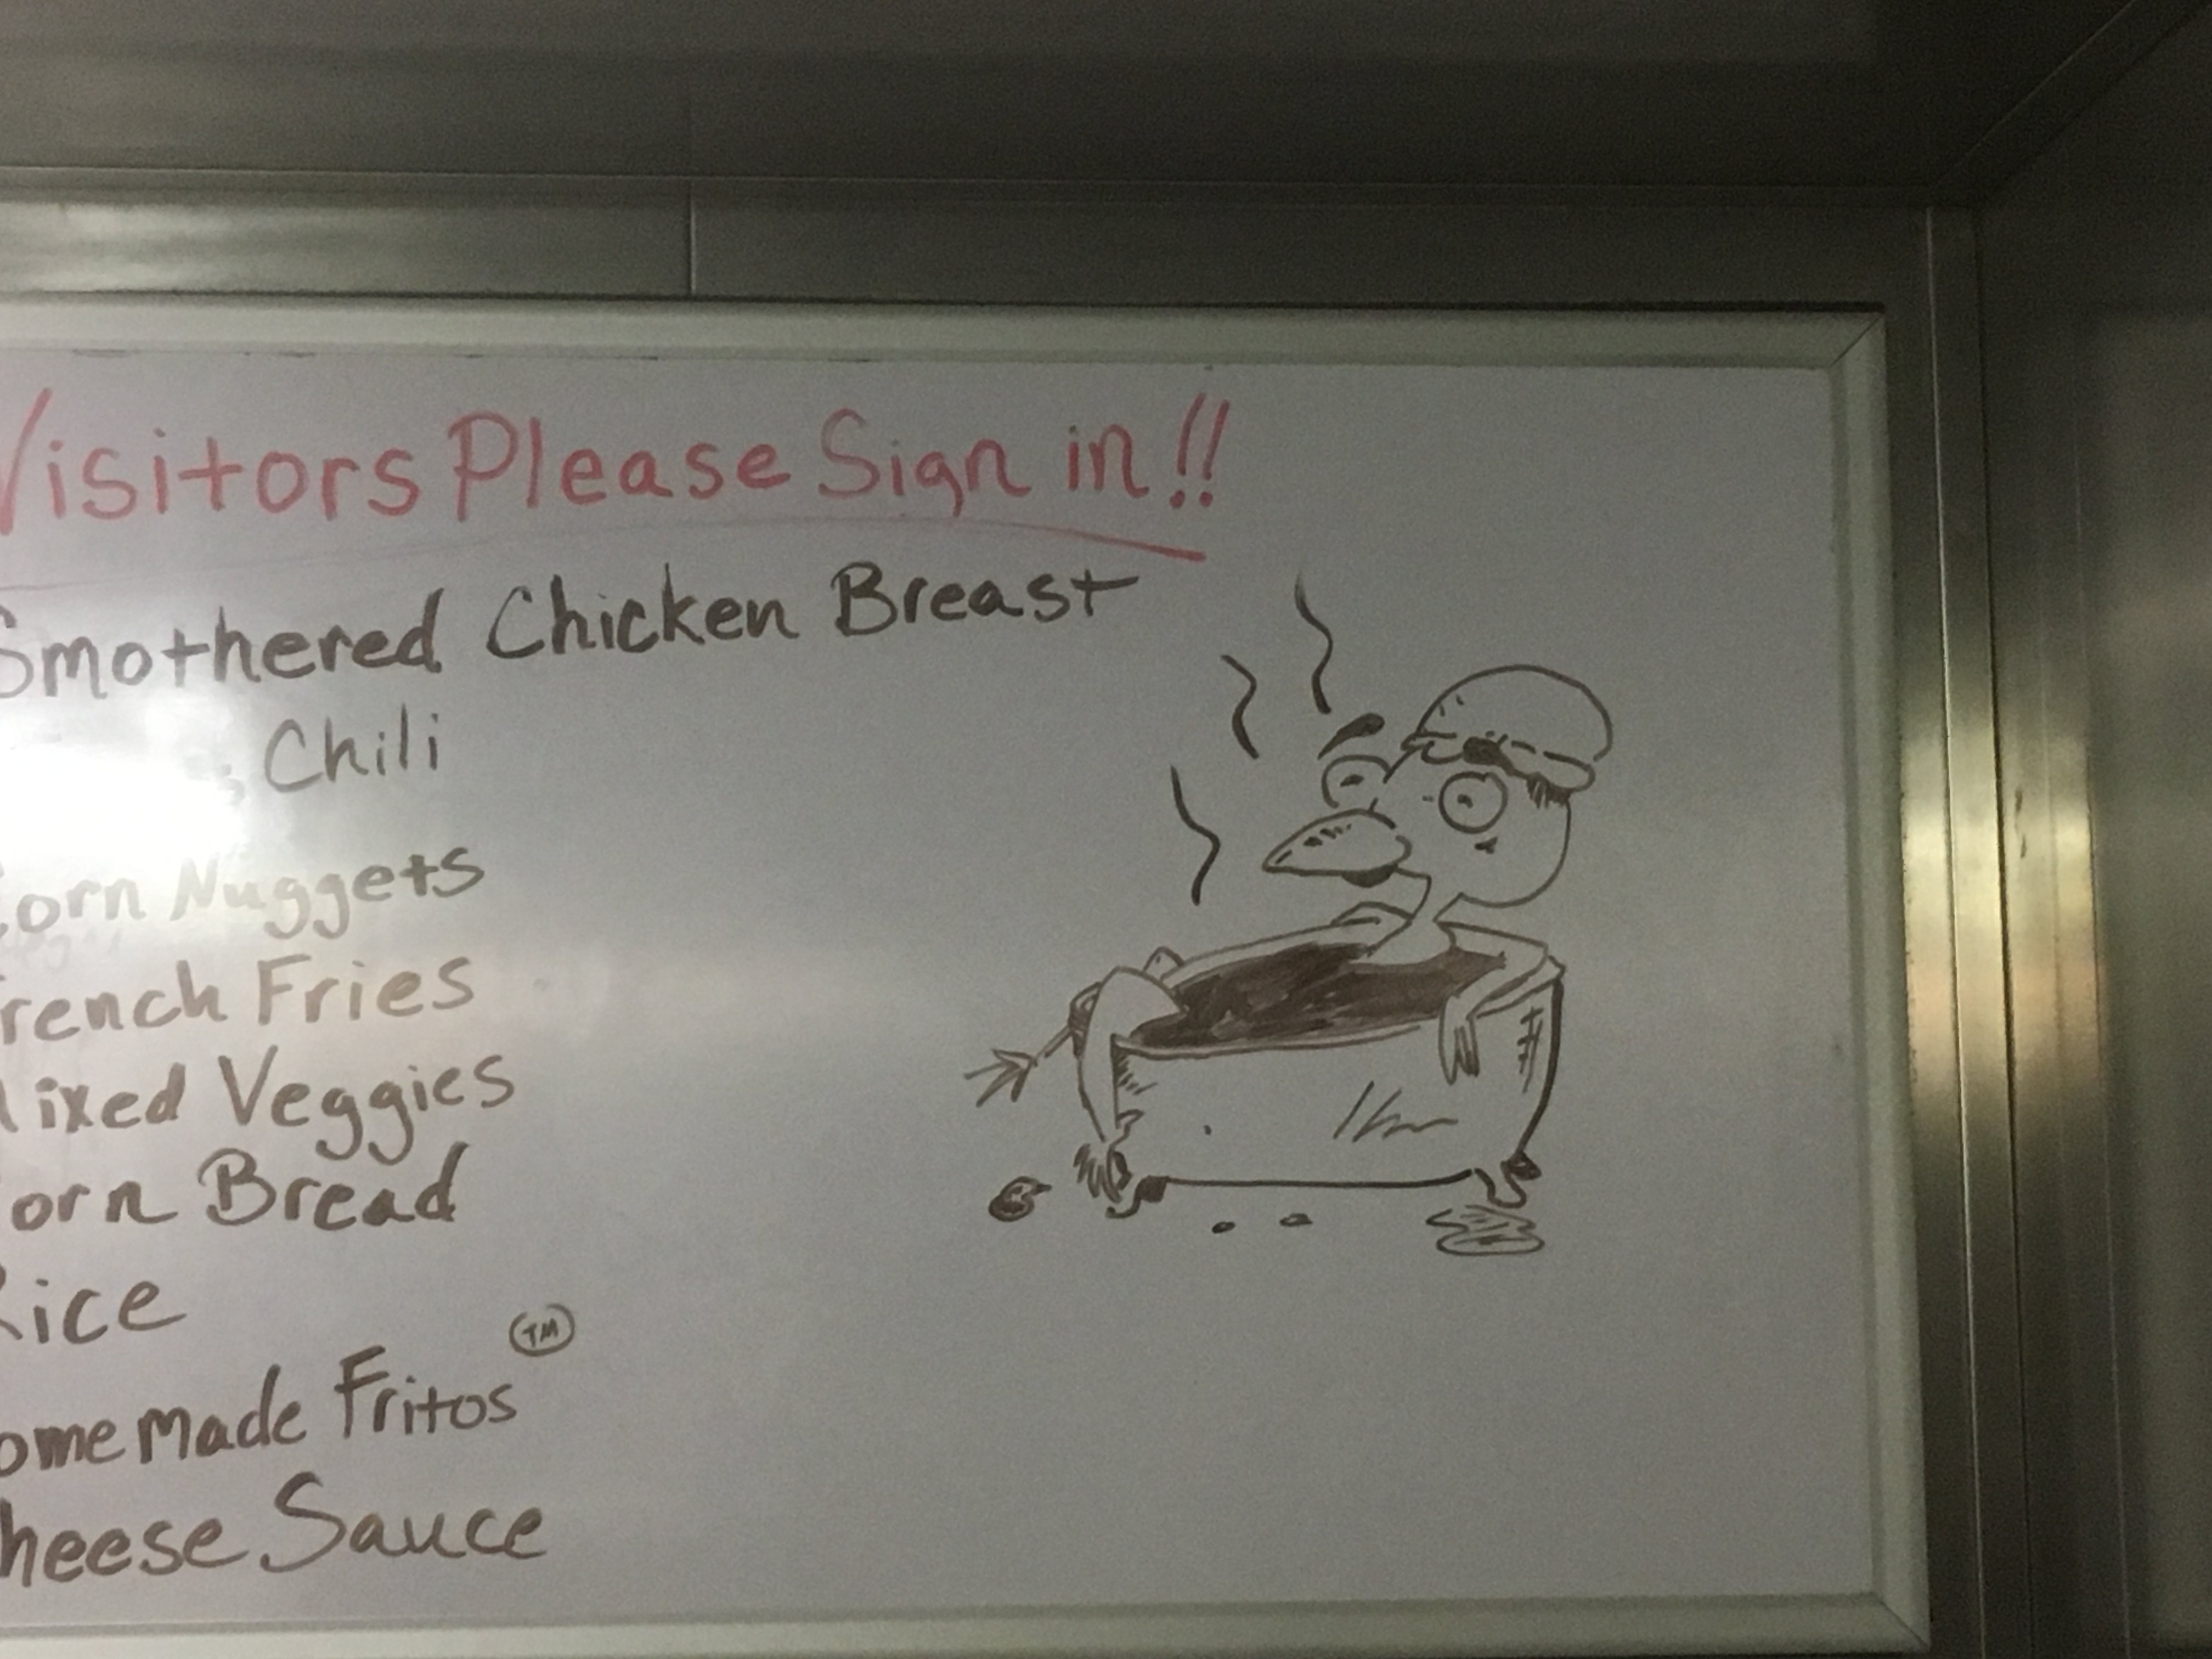 Visitors Please Sign in!!
Smothered Chicken Breast
Chili
Corn Nuggets
French Fries
Mixed Veggies
Corn Bread
Rice
Homemade Fritos TM
Cheese Sauce